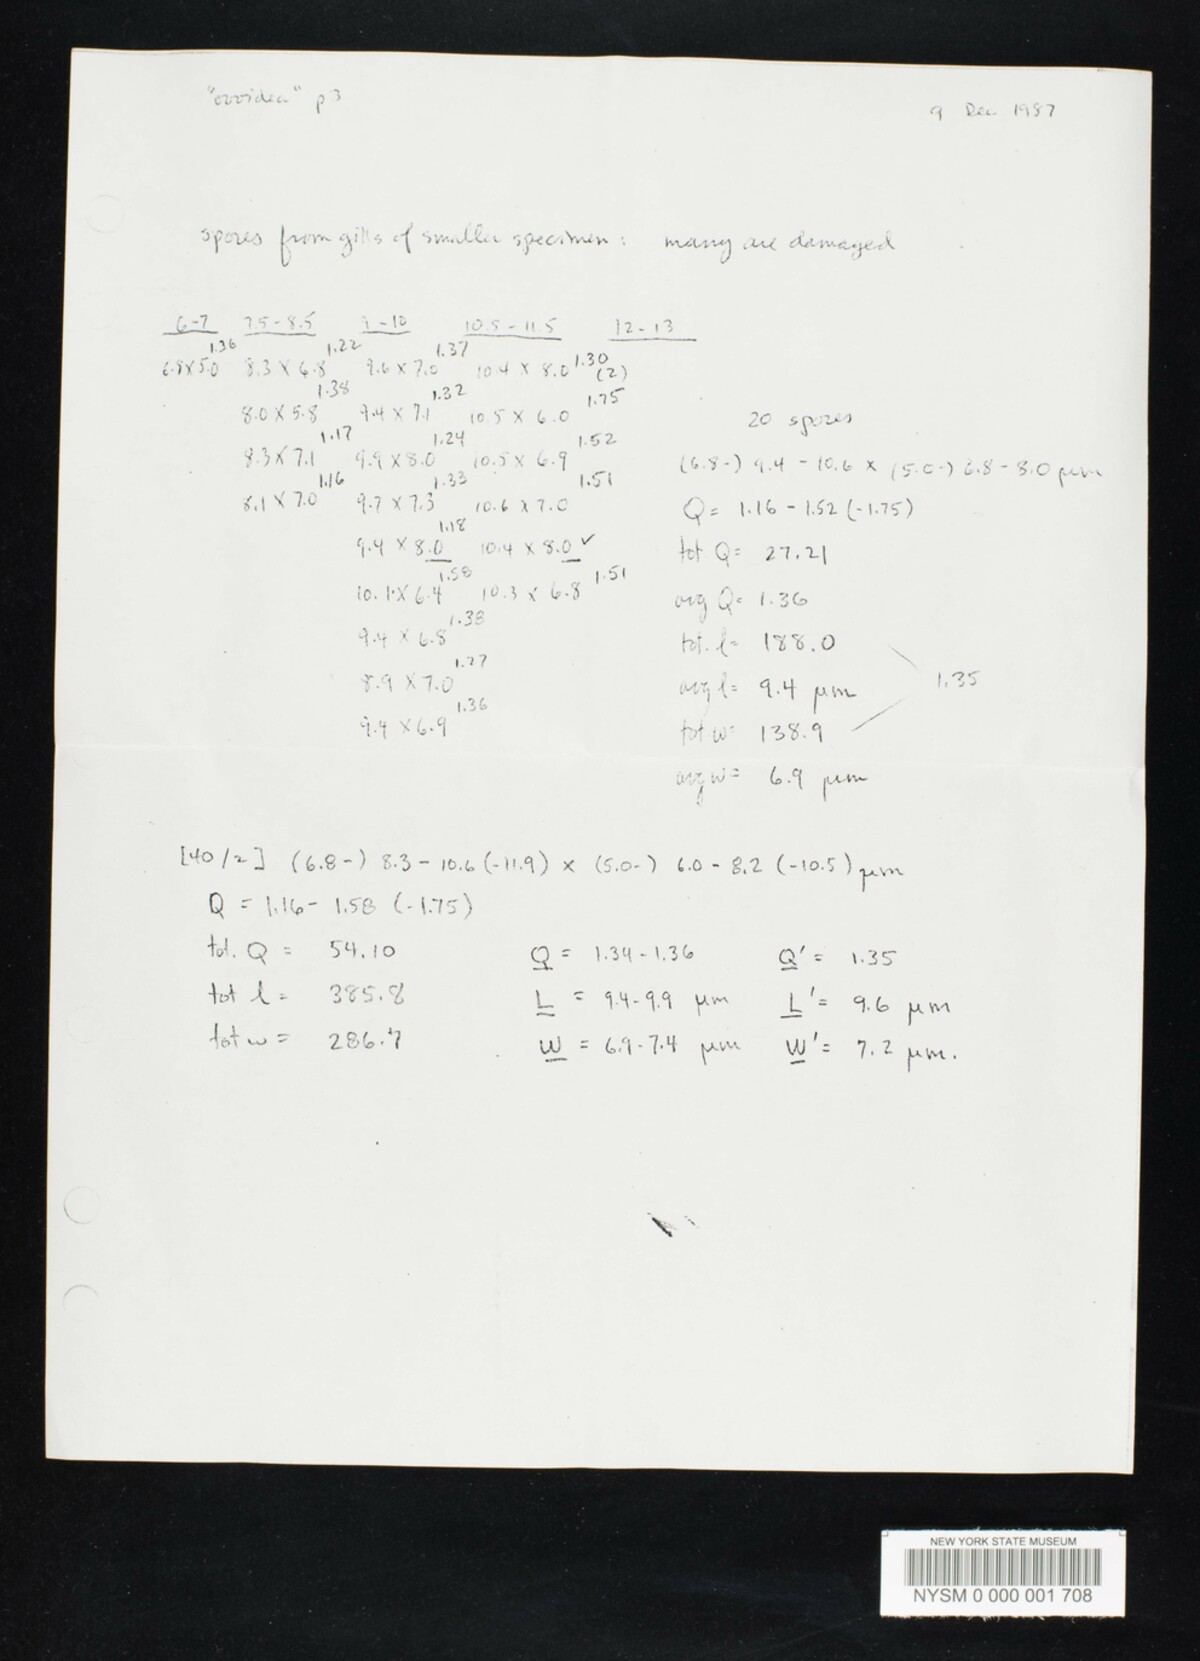 "ovoidea" p3
9 Dec 1987
spores from gills of smaller specimen: many are damaged
6-7 7.5-8.5 9-10 10.5-11.5 12-13
6.8 x 5.0 1.36 8.3 x 6.8 1.22 9.6 x 7.0 1.37 10.4 x 8.0 1.30 (2)
8.0 x 5.8 1.38 9.4 x 7.1 1.32 10.5 x 6.0 1.75
8.3 x 7.1 1.17 9.9 x 8.0 1.24 10.5 x 6.9 1.52
8.1 x 7.0 1.16 9.7 x 7.3 1.33 10.6 x 7.0 1.51
9.4 x 8.0 1.18 10.4 x 8.0 ✓
10.1 x 6.4 1.58 10.3 x 6.8 1.51
9.4 x 6.8 1.38
8.9 x 7.0 1.27
9.4 x 6.9 1.36
20 spores
(6.8-) 9.4 - 10.6 x (5.0-) 6.8 - 8.0 µm
Q = 1.16 - 1.52 (-1.75)
tot Q = 27.21
avg Q = 1.36
tot. l = 188.0
avg l = 9.4 µm
1.35
tot w = 138.9
avg w = 6.9 µm
[40/2] (6.8-) 8.3 - 10.6 (-11.9) x (5.0-) 6.0 - 8.2 (-10.5) µm
Q = 1.16 - 1.58 (-1.75)
tot. Q = 54.10 Q = 1.34-1.36 Q' = 1.35
tot l = 385.8 L = 9.4-9.9 µm L' = 9.6 µm
tot w = 286.7 W = 6.9-7.4 µm W' = 7.2 µm.
NEW YORK STATE MUSEUM
NYSM 0 000 001 708